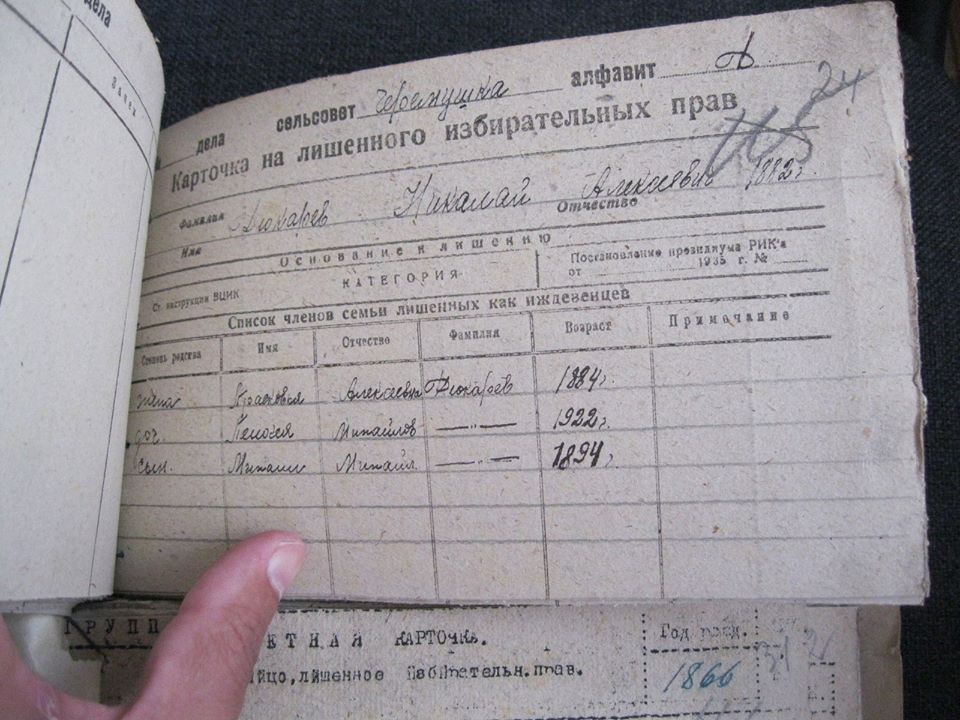 дела
Зачем
дела сельсовет Черемушка алфавит Д 24
Карточка на лишенного избирательных прав
Фамилия Дюкарев Николай Алексеевич 1882г.
Имя Отчество
Основание к лишению
Ст. инструкции ВЦИК КАТЕГОРИЯ Постановление президиума РИК'а
от 1935 г. №
Список членов семьи лишенных как иждевенцев
Степень родства Имя Отчество Фамилия Возраст Примечание
жена Алексеевна Дюкарев 1884г.
доч. Михайлов —〃— 1922г.
сын. Михаил Михайл —〃— 1894г.
ГРУПП ЕТНАЯ КАРТОЧКА. Год рожд.
лицо, лишенное избирательн. прав. 1866